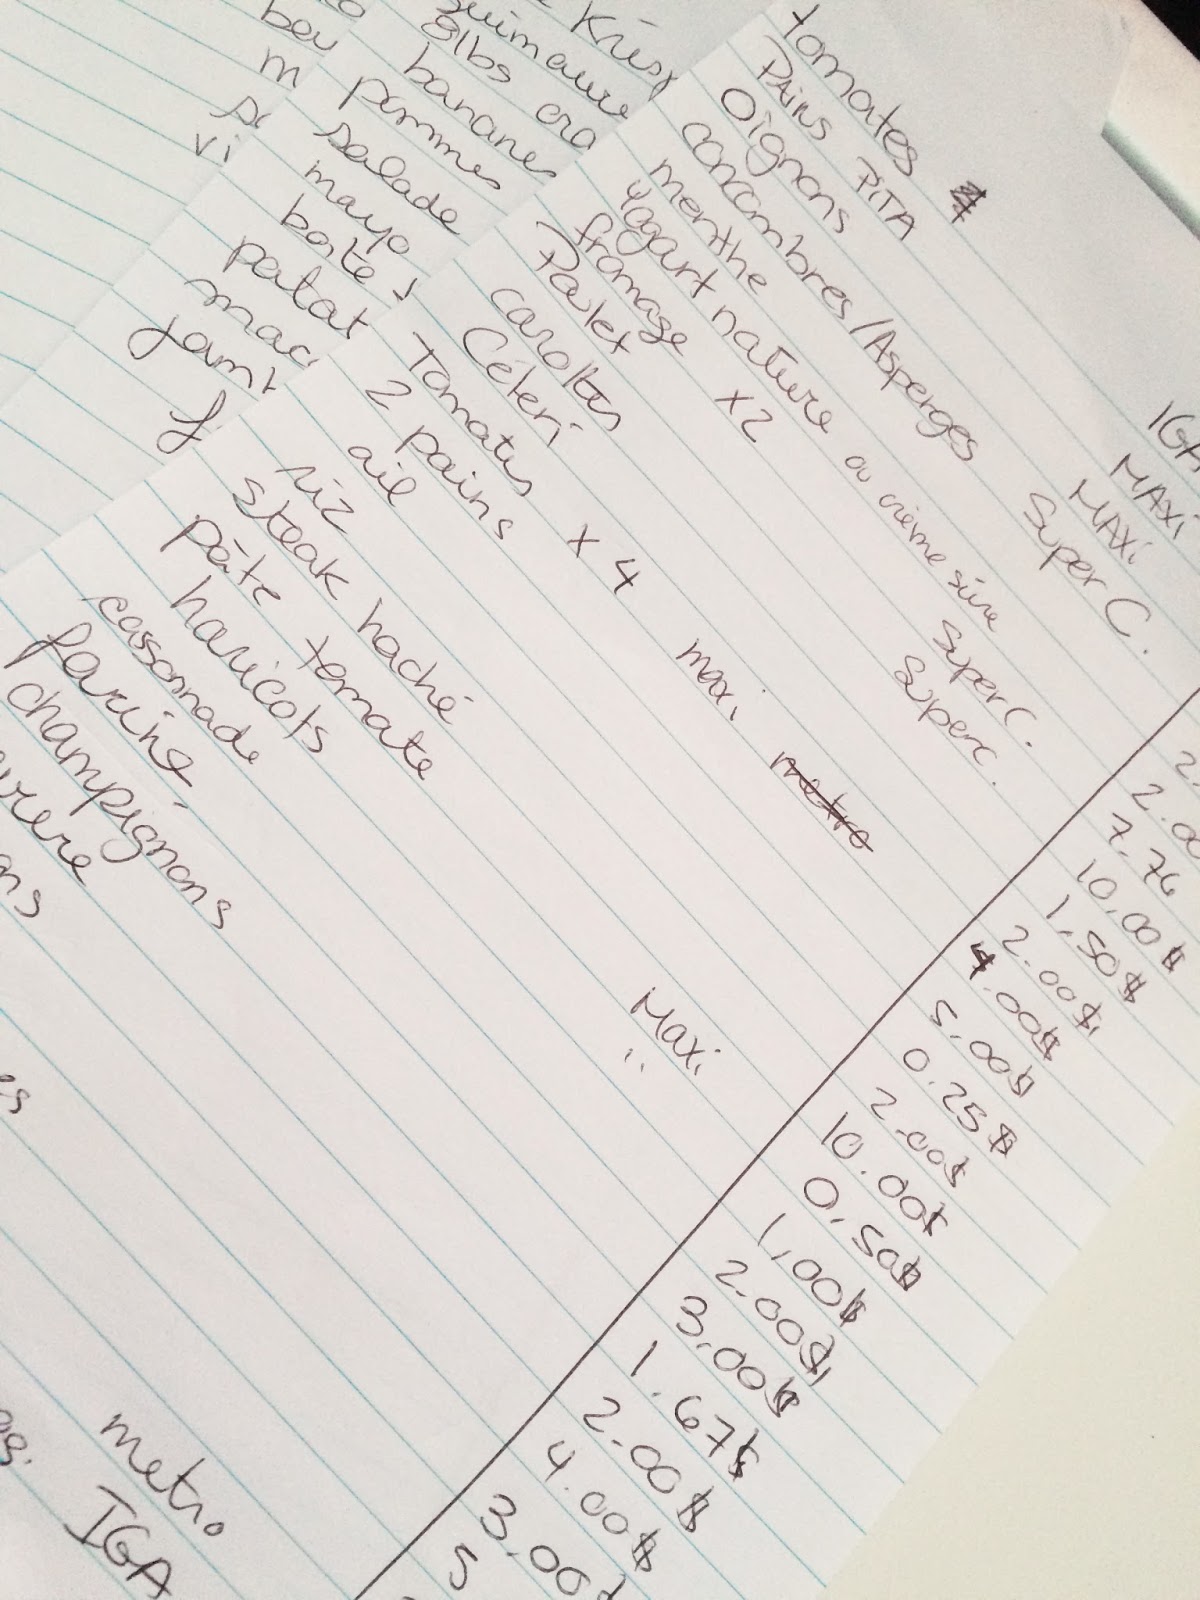 tomates
PAINS PITA
Oignons
concombres/Asperges
menthe
yogart nature ou crème sûre
fromage x2
Poulet
carottes
Céleri
Tomates x 4
2 pains
ail
riz
steak haché
pâte tomate
haricots
cassonade
farine
champignons
IGA
MAXi
MAXi
Super C.
Super C.
Super C.
maxi
metro
MAXi
"
metro
IGA
2.
2.00
7.76
10,00$
1,50$
2.00$
4.00$
5.00$
0.25$
2.00$
10.00$
0,50$
1,00$
2.00$
3,00$
1.67$
2.00$
4.00$
3,00$
5
Krisp
guimauve
8lbs
bananes
pommes
salade
mayo
boite
patat
mac